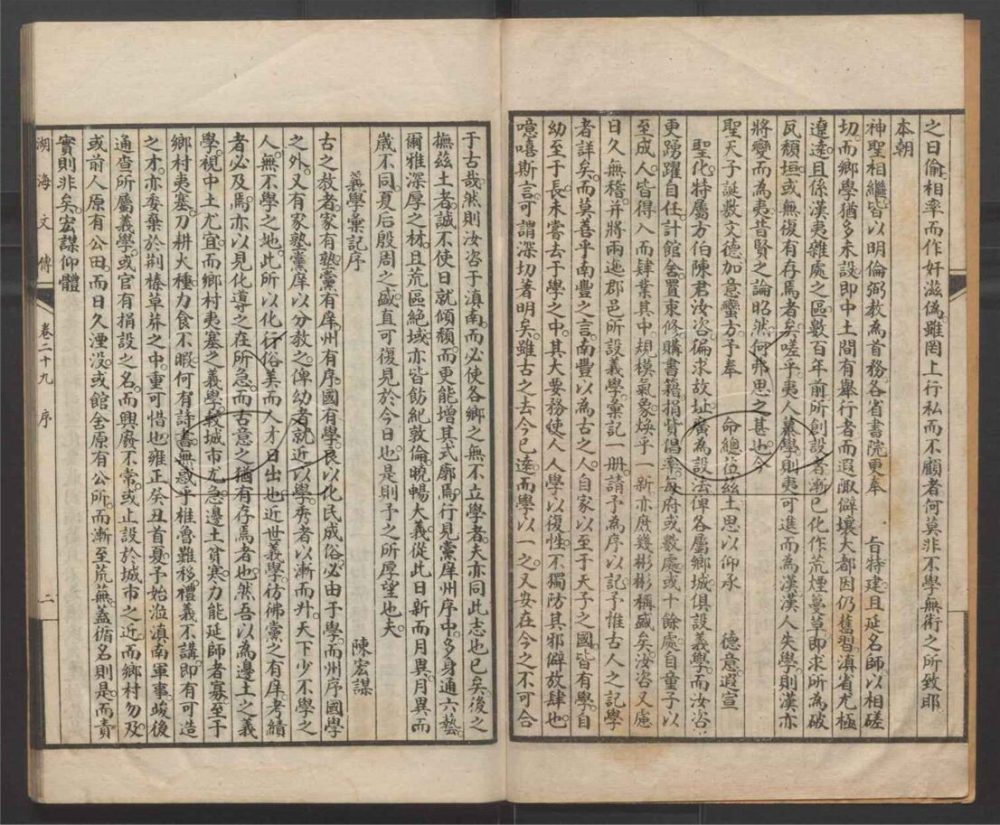 之日偷相率而作奸滋偽雖罔上行私而不顧者何莫非不學無術之所致耶
本朝
神聖相繼皆以明倫弼教為首務各省書院更奉 旨特建且延名師以相磋
切而鄉學猶多未設即中土間有舉行者而遐陬僻壤大都因仍舊習滇省尤極
遼遠且係漢夷雜處之區數百年前所創設者漸已化作荒煙蔓草即求所為破
瓦頹垣或無復有存焉者矣嗟乎夷人慕學則夷可進而為漢漢人失學則漢亦
將變而為夷昔賢之論昭然何弗思之甚也今
聖天子誕敷文德加意蠻方予奉 命總位茲土思以仰承 德意遐宣
聖化特屬方伯陳君汝咨徧求故址廣為設法俾各屬鄉城俱設義學而汝咨
更踴躍自任計館舍置束修購書籍捐貲倡率每府或數處或十餘處自童子以
至成人皆得入而肄業其中規模氣象煥乎一新亦庶幾彬彬稱盛矣汝咨又慮
日久無稽并將兩迤郡邑所設義學彙記一册請予為序以記予惟古人之記學
者詳矣而莫善乎南豐之言南豐以為古之人自家以至于天子之國皆有學自
幼至于長未嘗去于學之中其大要務使人人學以復性不獨防其邪僻放肆也
噫嘻斯言可謂深切著明矣雖古之去今已遠而學以一之又安在今之不可合
于古哉然則汝咨于滇南而必使各鄉之無不立學者夫亦同此志也已矣後之
撫茲土者誠不使日就傾頹而更能增其式廓焉行見黨庠州序中多身通六藝
爾雅深厚之材且荒區絕域亦皆飭紀敦倫晩暢大義從此日新而月異月異而
歲不同夏后殷周之盛直可復見於今日也是則予之所厚望也夫
義學彙記序 陳宏謀
古之教者家有塾黨有庠州有序國有學良以化民成俗必由于學而州序國學
之外又有家塾黨庠以分教之俾幼者就近以學秀者以漸而升天下少不學之
人無不學之地此所以化行俗美而人才日出也近世義學彷彿黨之有庠者續
者必及焉亦以見化導之在所急而古意之猶有存焉者也然吾以為邊土之義
學視中土尤宜而鄉村夷寨之義學較城市尤急邊土貧寒力能延師者寡至于
鄉村夷寨刀耕火種力食不暇何有詩書無惑乎椎魯難移禮義不講即有可造
之才亦委棄於荆榛草莽之中重可惜也雍正癸丑首夏予始涖滇南軍事竣後
通查所屬義學或官有捐設之名而興廢不常或止設於城市之近而鄉村勿及
或前人原有公田而日久湮没或館舍原有公所而漸至荒蕪蓋循名則是而責
實則非矣宏謀仰體
湖海文傳 卷二十九 序 二